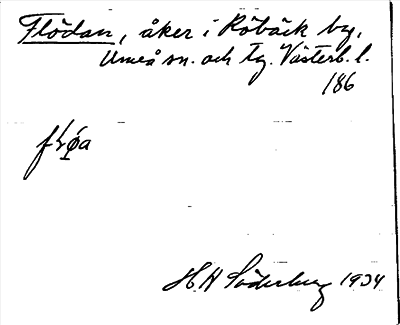 Flödan, åker i Röbäck by,
Umeå sn. och tg. Västerb. l.
186
H H Söderberg 1934